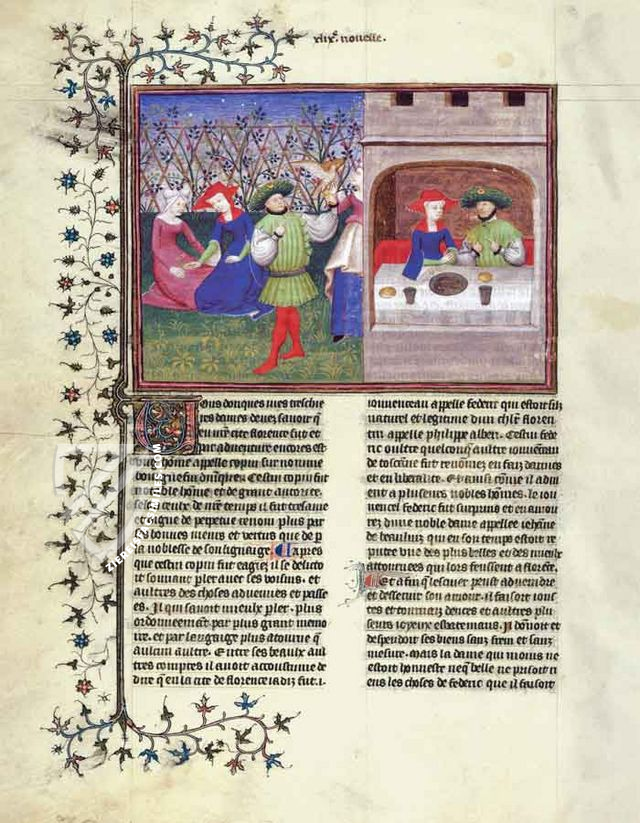 xlix.e nouelle.
Vous donques mes treschie
res dames deuez sauoir q̄
en nr̄e cite florence fut et
par aduenture encores est
vng hōme appelle copin sur nōmme
bourgue fut dmq̄re. Cestui copin fut
notable hōme et de grant auctorite
selon ceulx de nr̄e temps il fut tresame
et digne de perpetue renom plus par
ses bonnes meurs et vertus que de p̄
la noblesse de son lignaige. Apres
que cestui copin fut eagie il se delicto
it souuant p̄ler auec ses voisins et
aultres des choses aduenues et passe
es. Il qui sauoit mieulx p̄ler. plus
ordonneemēt par plus grant memo
ire. et par langaige plus atourne q̄
aulcun aultre. Entre ses beaulx aul
tres comptes il auoit acoustume de
dire qu en la cite de florence iadiz fut .i.
iouuenceau appelle federic qui estoit filz
naturel et legitime dun chl̄r floren
tin appelle philippe alberi. Cestui fede
ric oultre quelconq̄ aultre iouuēceau
de toscēne fut renōmez en faiz darmes
et en liberalite. Et ainsi cōme il ad
uient a pluseurs nobles hōmes. le iou
uencel federic fut surpris et enamou
rez dune noble dame appellee iehāne
de beaulieu qui en son temps estoit re
putee vne des plus belles et des mieulx
attournees qui lors feussent a florēce.
Et afin q̄ lesauer peust aquerdre
et desseruir son amour. il faisoit ious
tes et tournoiz dances et aultres plu
seurs ioyeux esbatemans. Il dōnoit et
despendoit ses biens sanz frein et sanz
mesure. Mais la dame qui moins ne
estoit honneste neq̄ belle ne prisoit ri
ens les choses de federic que il faisoit